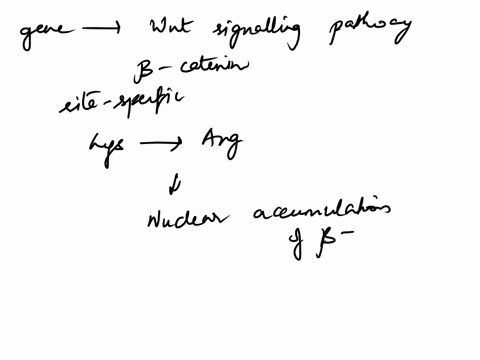 gene → Wnt signalling pathway
β-catenin
site-specific
Lys → Arg
↓
Nuclear accumulations
of β-